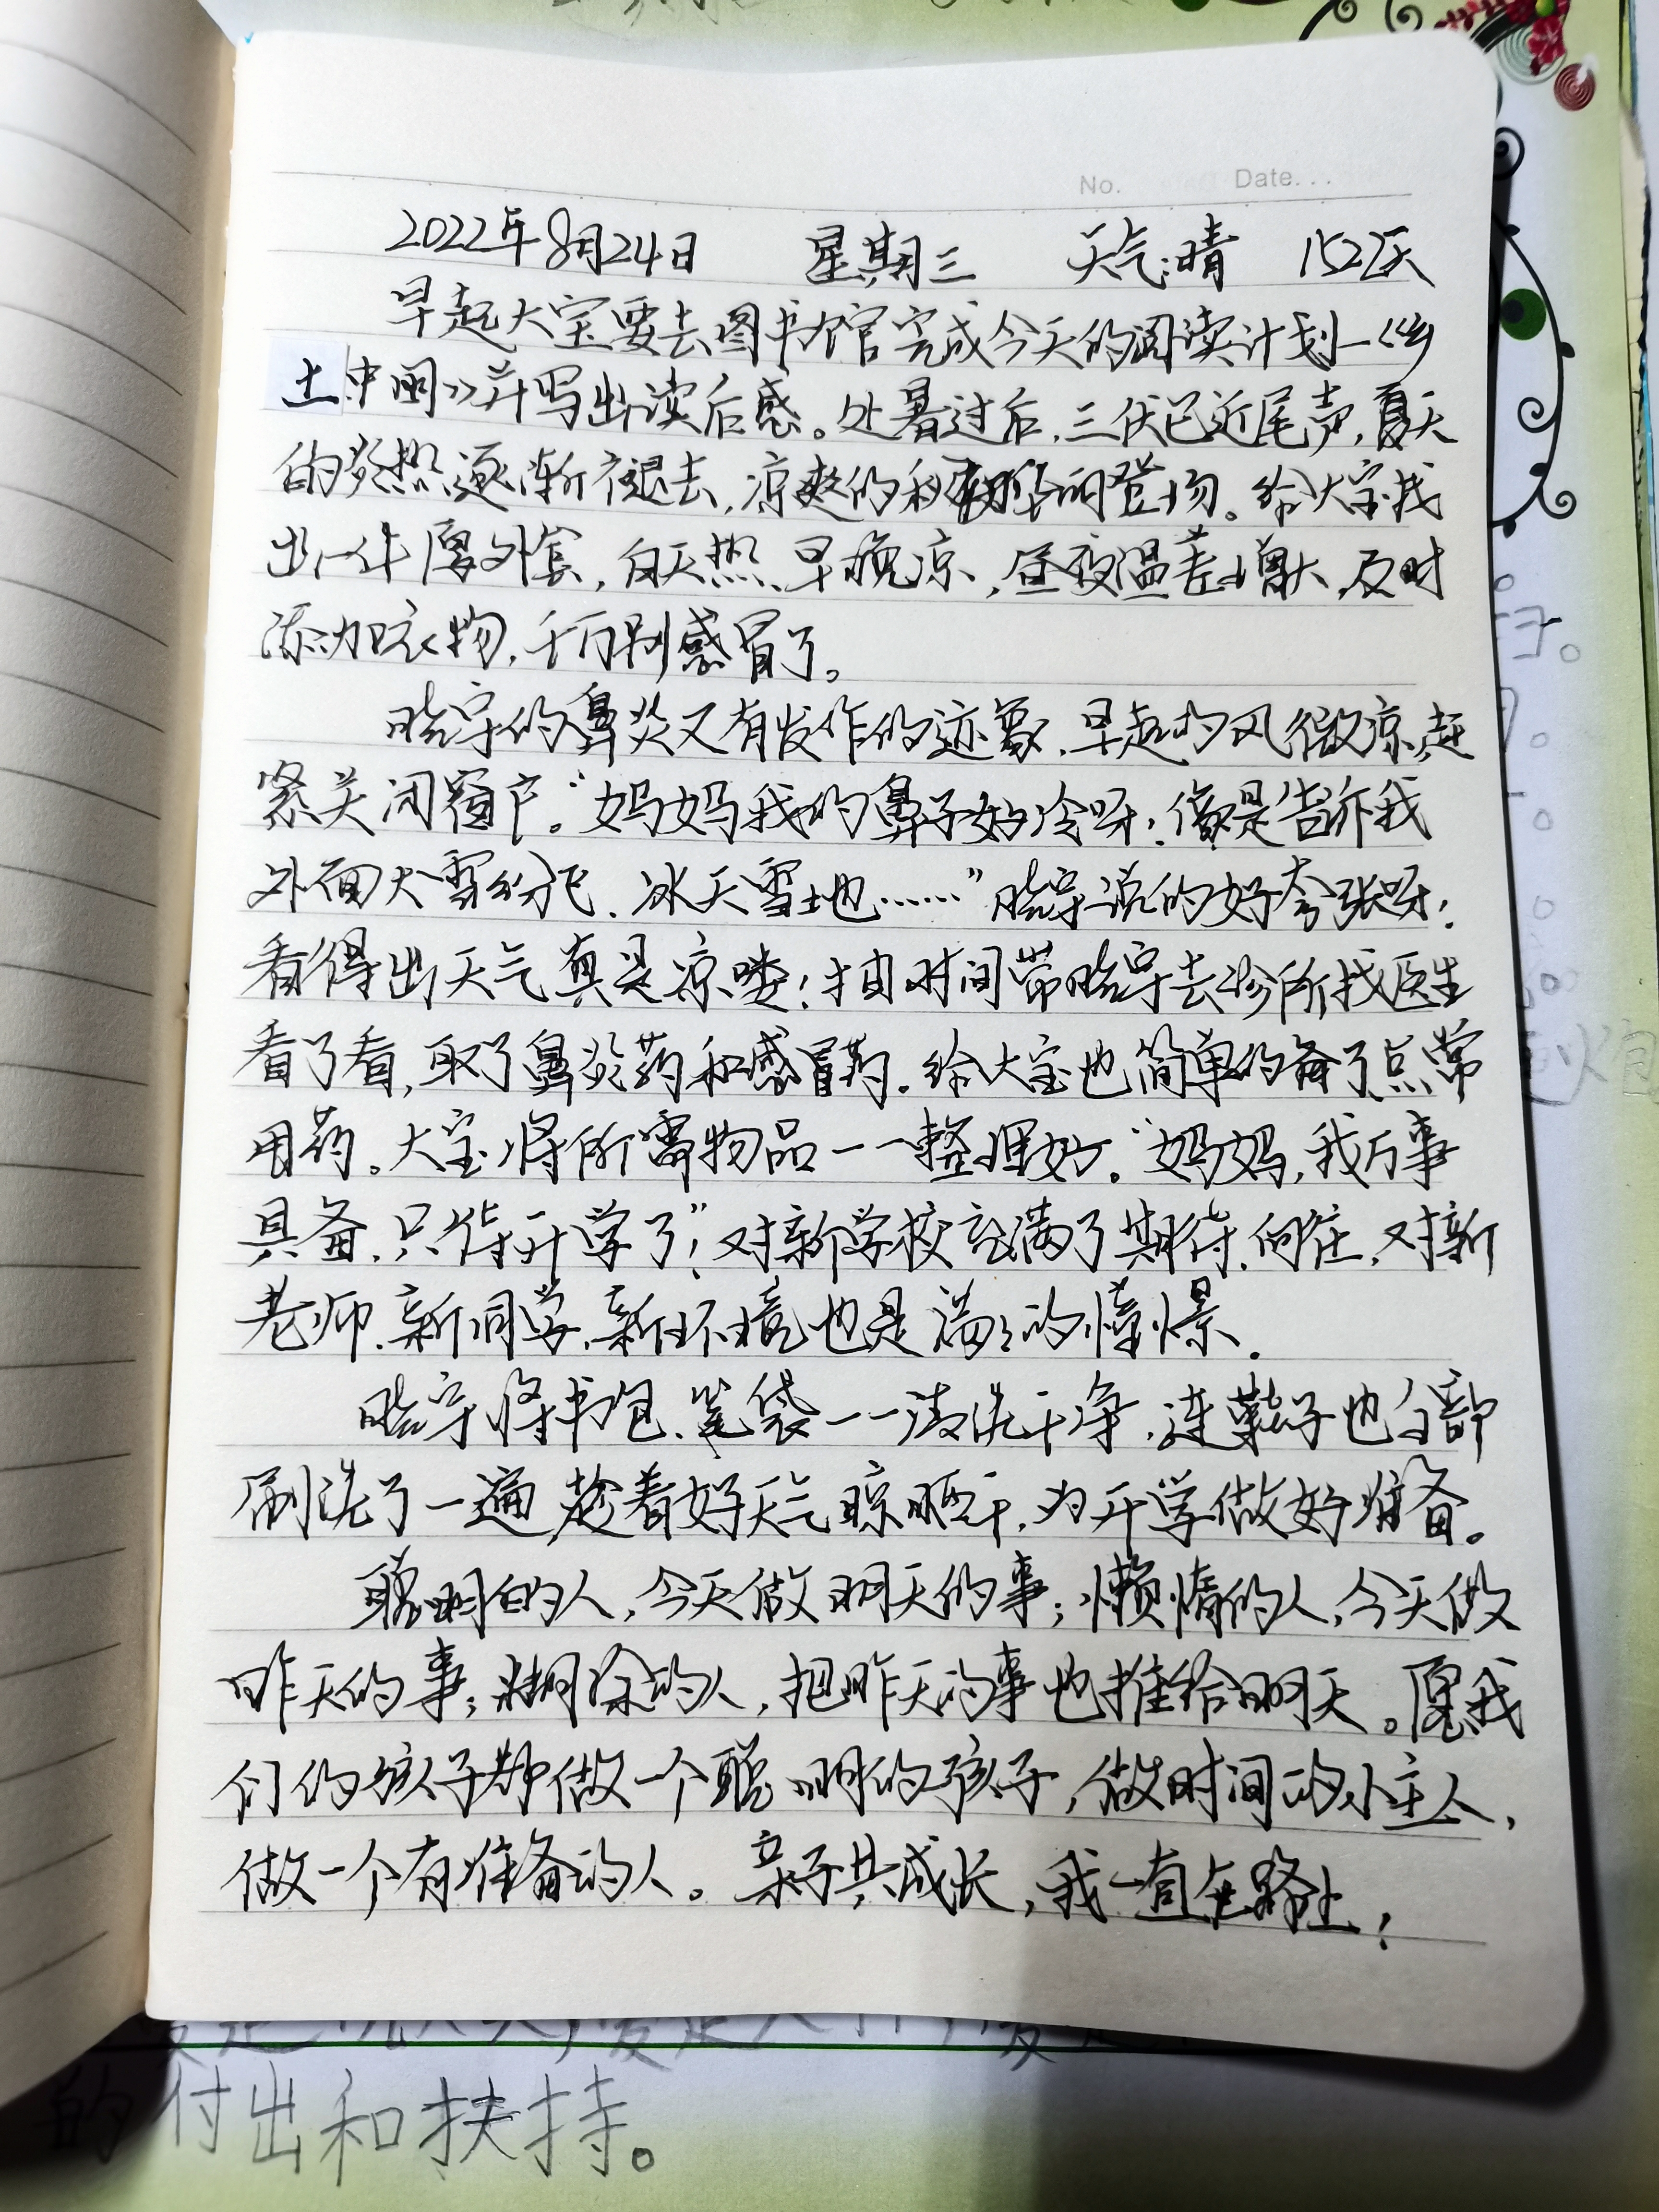 No. Date...
2022年8月24日 星期三 天气:晴 152天
早起大宝要去图书馆完成今天的阅读计划—《乡
土中国》并写出读后感。处暑过后,三伏已近尾声,夏天
的炎热逐渐褪去,凉爽的秋登场。给大宝找
出一件厚外套,白天热、早晚凉,昼夜温差增大,及时
添加衣物,千万别感冒了。
晓宇的鼻炎又有发作的迹象,早起的风微凉,赶
紧关闭窗户。“妈妈我的鼻子好冷呀!像是告诉我
外面大雪纷飞、冰天雪地……”晓宇说的好夸张呀!
看得出天气真是凉喽!抽时间带晓宇去诊所找医生
看了看,取了鼻炎药和感冒药。给大宝也简单的备了点常
用药。大宝将所需物品一一整理好。“妈妈,我万事
具备,只待开学了”!对新学校充满了期待、向往,对新
老师、新同学、新环境也是满满的憧憬。
晓宇将书包、笔袋一一清洗干净,连鞋子也全部
刷洗了一遍,趁着好天气晾晒干,为开学做好准备。
聪明的人,今天做明天的事;懒惰的人,今天做
昨天的事;糊涂的人,把昨天的事也推给明天。愿我
们的孩子都做一个聪明的孩子,做时间的小主人,
做一个有准备的人。亲子共成长,我一直在路上!
的付出和扶持。